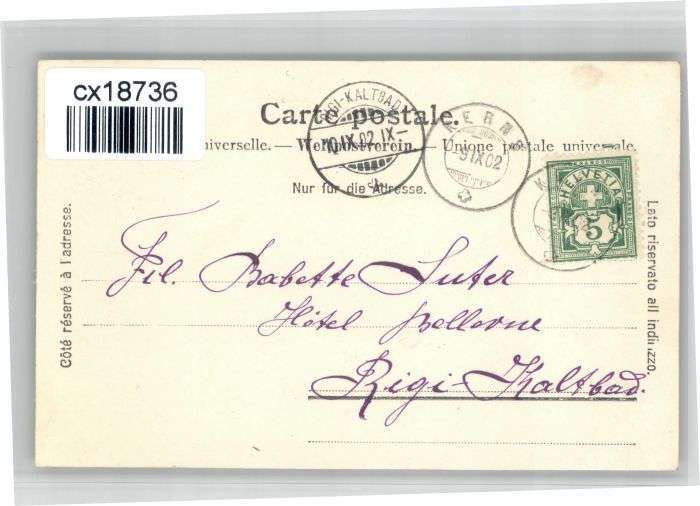 cx18736
RIGI-KALTBAD
10.IX.02.IX-
KERNS
-9.IX.02
Carte postale.
universelle. — Weltpostverein. — Unione postale universale.
Nur für die Adresse.
HELVETIA
5
Côté réservé à l'adresse.
Lato riservato all' indirizzo.
Frl. Babette Suter
Hôtel Bellevue
Rigi-Kaltbad.